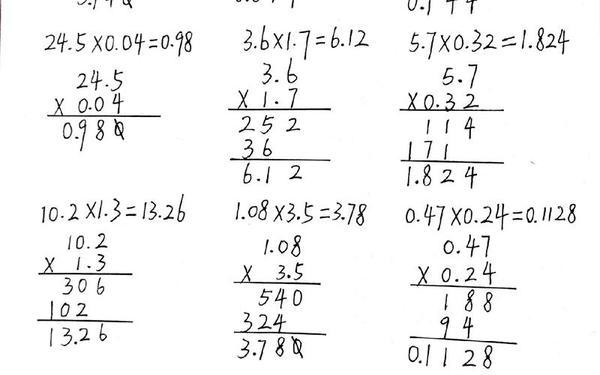 24.5×0.04=0.98
24.5
×0.04
0.980
3.6×1.7=6.12
3.6
×1.7
252
36
6.12
5.7×0.32=1.824
5.7
×0.32
114
171
1.824
10.2×1.3=13.26
10.2
×1.3
306
102
13.26
1.08×3.5=3.78
1.08
×3.5
540
324
3.780
0.47×0.24=0.1128
0.47
×0.24
188
94
0.1128